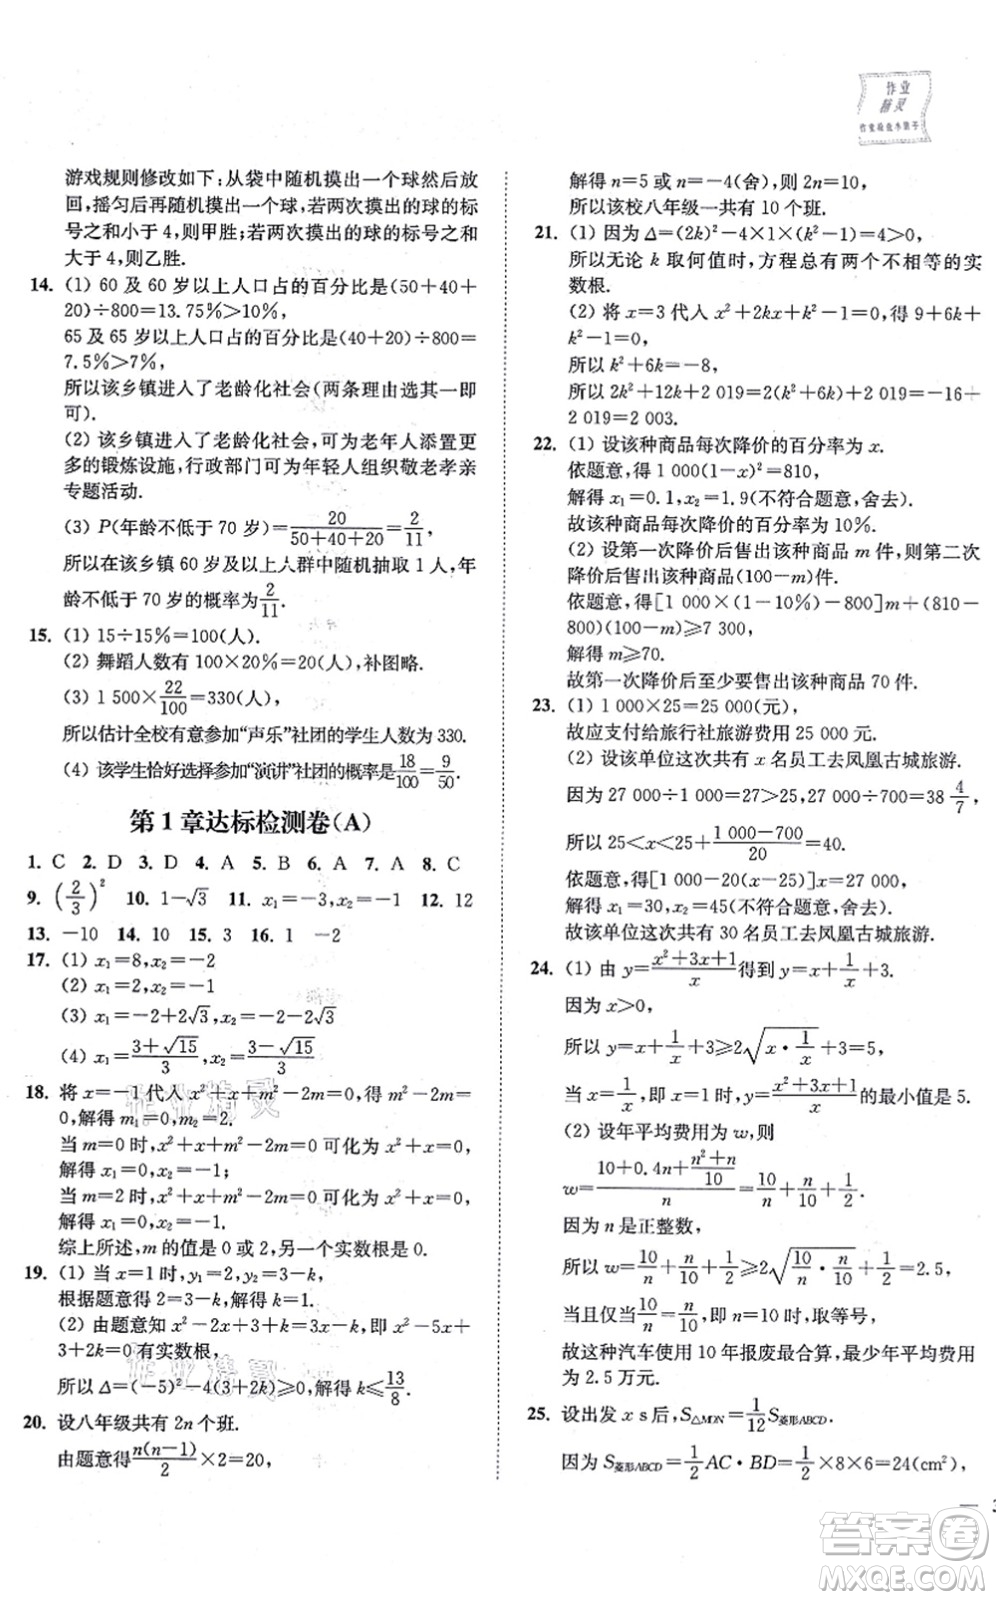 作业
精灵
游戏规则修改如下:从袋中随机摸出一个球然后放
回,摇匀后再随机摸出一个球,若两次摸出的球的标
号之和小于 4,则甲胜;若两次摸出的球的标号之和
大于 4,则乙胜.
14. (1) 60 及 60 岁以上人口占的百分比是(50+40+
20)÷800=13.75%>10%,
65 及 65 岁以上人口占的百分比是(40+20)÷800=
7.5%>7%,
所以该乡镇进入了老龄化社会(两条理由选其一即
可).
(2) 该乡镇进入了老龄化社会,可为老年人添置更
多的锻炼设施,行政部门可为年轻人组织敬老孝亲
专题活动.
(3) P(年龄不低于 70 岁)=20/(50+40+20)=2/11,
所以该乡镇 60 岁及以上人群中随机抽取 1 人,年
龄不低于 70 岁的概率为2/11.
15. (1) 15÷15%=100(人).
(2) 舞蹈人数有 100×20%=20(人),补图略.
(3) 1 500×22/100=330(人),
所以估计全校有意参加“声乐”社团的学生人数为 330.
(4) 该学生恰好选择参加“演讲”社团的概率是18/100=9/50.
第 1 章达标检测卷(A)
1. C 2. D 3. D 4. A 5. B 6. A 7. A 8. C
9. (2/3)² 10. 1-√3 11. x₁=-3,x₂=-1 12. 12
13. -10 14. 10 15. 3 16. 1 -2
17. (1) x₁=8,x₂=-2
(2) x₁=2,x₂=-1
(3) x₁=-2+2√3,x₂=-2-2√3
(4) x₁=(3+√15)/3,x₂=(3-√15)/3
18. 将 x=-1 代入 x²+x+m²-2m=0,得 m²-2m=
0,解得 m₁=0,m₂=2.
当 m=0 时,x²+x+m²-2m=0 可化为 x²+x=0,
解得 x₁=0,x₂=-1;
当 m=2 时,x²+x+m²-2m=0 可化为 x²+x=0,
解得 x₁=0,x₂=-1.
综上所述,m 的值是 0 或 2,另一个实数根是 0.
19. (1) 当 x=1时,y₁=2,y₂=3-k,
根据题意得 2=3-k,解得 k=1.
(2) 由题意知 x²-2x+3+k=3x-k,即 x²-5x+
3+2k=0 有实数根,
所以 Δ=(-5)²-4(3+2k)≥0,解得 k≤13/8.
20. 设八年级共有 2n 个班.
由题意得n(n-1)/2×2=20,
解得 n=5或 n=-4(舍),则 2n=10,
所以该校八年级一共有 10 个班.
21. (1) 因为 Δ=(2k)²-4×1×(k²-1)=4>0,
所以无论 k 取何值时,方程总有两个不相等的实
数根.
(2) 将 x=3 代入 x²+2kx+k²-1=0,得 9+6k+
k²-1=0,
所以 k²+6k=-8,
所以 2k²+12k+2 019=2(k²+6k)+2 019=-16+
2 019=2 003.
22. (1) 设该种商品每次降价的百分率为 x.
依题意,得 1 000(1-x)²=810,
解得 x₁=0.1,x₂=1.9(不符合题意,舍去).
故该种商品每次降价的百分率为 10%.
(2) 设第一次降价后售出该种商品 m 件,则第二次
降价后售出该种商品(100-m)件.
依题意,得[1 000×(1-10%)-800]m+(810-
800)(100-m)≥7 300,
解得 m≥70.
故第一次降价后至少要售出该种商品 70 件.
23. (1) 1 000×25=25 000(元),
故应支付给旅行社旅游费用 25 000 元.
(2) 设该单位这次共有 x 名员工去凤凰古城旅游.
因为 27 000÷1 000=27>25,27 000÷700=38 4/7,
所以 25<x<25+(1 000-700)/20=40.
依题意,得[1 000-20(x-25)]x=27 000,
解得 x₁=30,x₂=45(不符合题意,舍去).
故该单位这次共有 30 名员工去凤凰古城旅游.
24. (1) 由 y=(x²+3x+1)/x得到 y=x+1/x+3.
因为 x>0,
所以 y=x+1/x+3≥2√(x·1/x)+3=5,
当 x=1/x,即 x=1时,y=(x²+3x+1)/x的最小值是 5.
(2) 设年平均费用为 w,则
w=(10+0.4n+(n²+n)/10)/n=10/n+n/10+1/2.
因为 n 是正整数,
所以 w=10/n+n/10+1/2≥2√(10/n·n/10)+1/2=2.5,
当且仅当10/n=n/10,即 n=10 时,取等号,
故这种汽车使用 10 年报废最合算,最少年平均费用
为 2.5 万元.
25. 设出发 x s后,S△MON=1/12S菱形ABCD.
因为 S菱形ABCD=1/2AC·BD=1/2×8×6=24(cm²),
— 3
答案圈
MXQE.COM